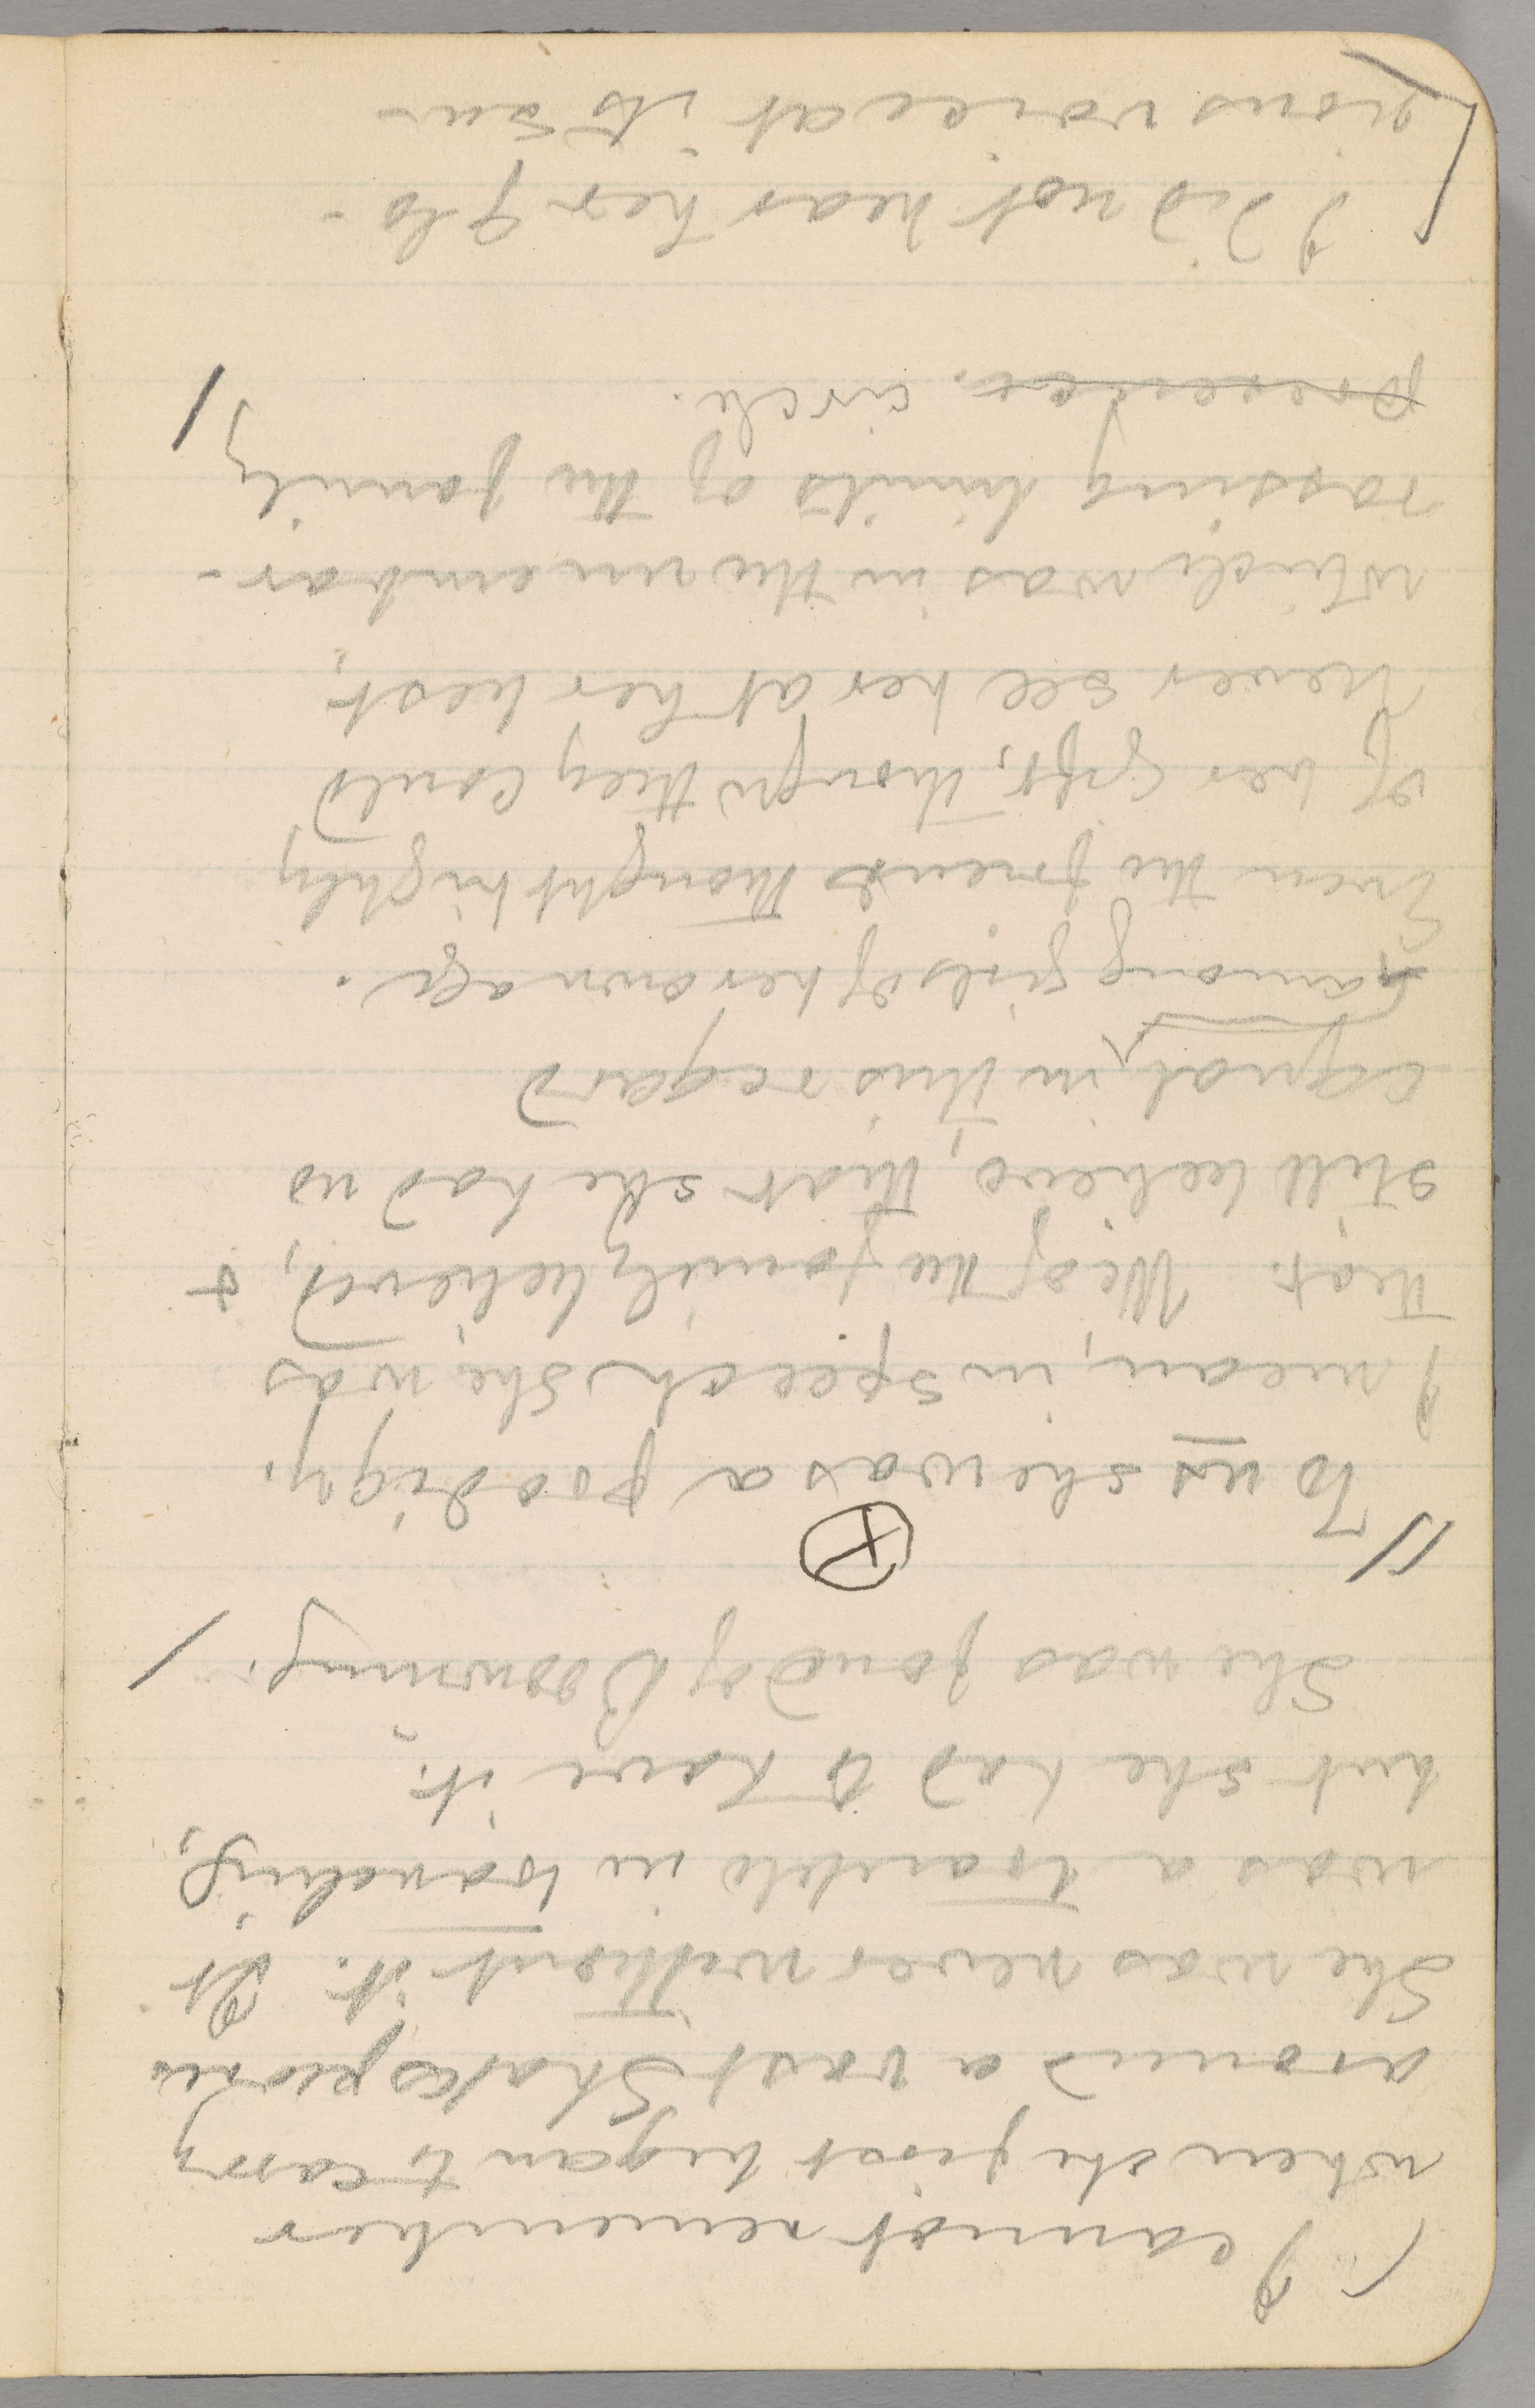 ( I cannot remember
when she first began to carry
around a vast Shakspeare.
She was never without it. It
was a trouble in traveling,
but she had to have it.
She was fond of Browning. /
⊗
// To us she was a prodigy.
I mean, in speech she was
that. We of the family believed, &
still believe, that she had no
equal, in this regard
^among girls of her own age.
Even the friends thought highly
of her gift, though they could
never see her at her best,
which was in the unembar-
rassing limits of the family
presence. circle. /
I did not hear her glo-
rious voice at its su-